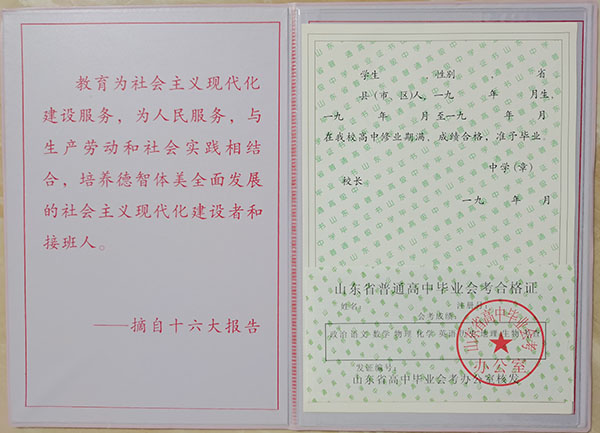 教育为社会主义现代化
建设服务，为人民服务，与
生产劳动和社会实践相结
合，培养德智体美全面发展
的社会主义现代化建设者和
接班人。
——摘自十六大报告
学生 ，性别 ， 省
县(市、区)人，一九 年 月生，
一九 年 月至一九 年 月
在我校高中修业期满、成绩合格，准予毕业
中学(章)
校长
一九 年 月
山东省普通高中毕业会考合格证
姓名： 注册号
会考成绩：
政治 语文 数学 物理 化学 英语 历史 地理 生物
发证编号：
山东省高中毕业会考办公室核发
山东省高中毕业会考
办公室